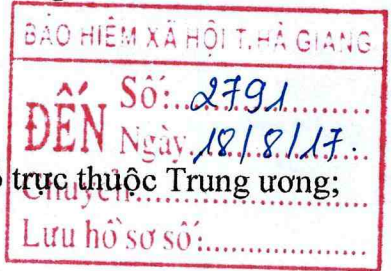 BẢO HIỂM XÃ HỘI T.HÀ GIANG
ĐẾN
Số:..2791............
Ngày..18/8/17.
trực thuộc Trung ương;
Chuyển:................
Lưu hồ sơ số:...............